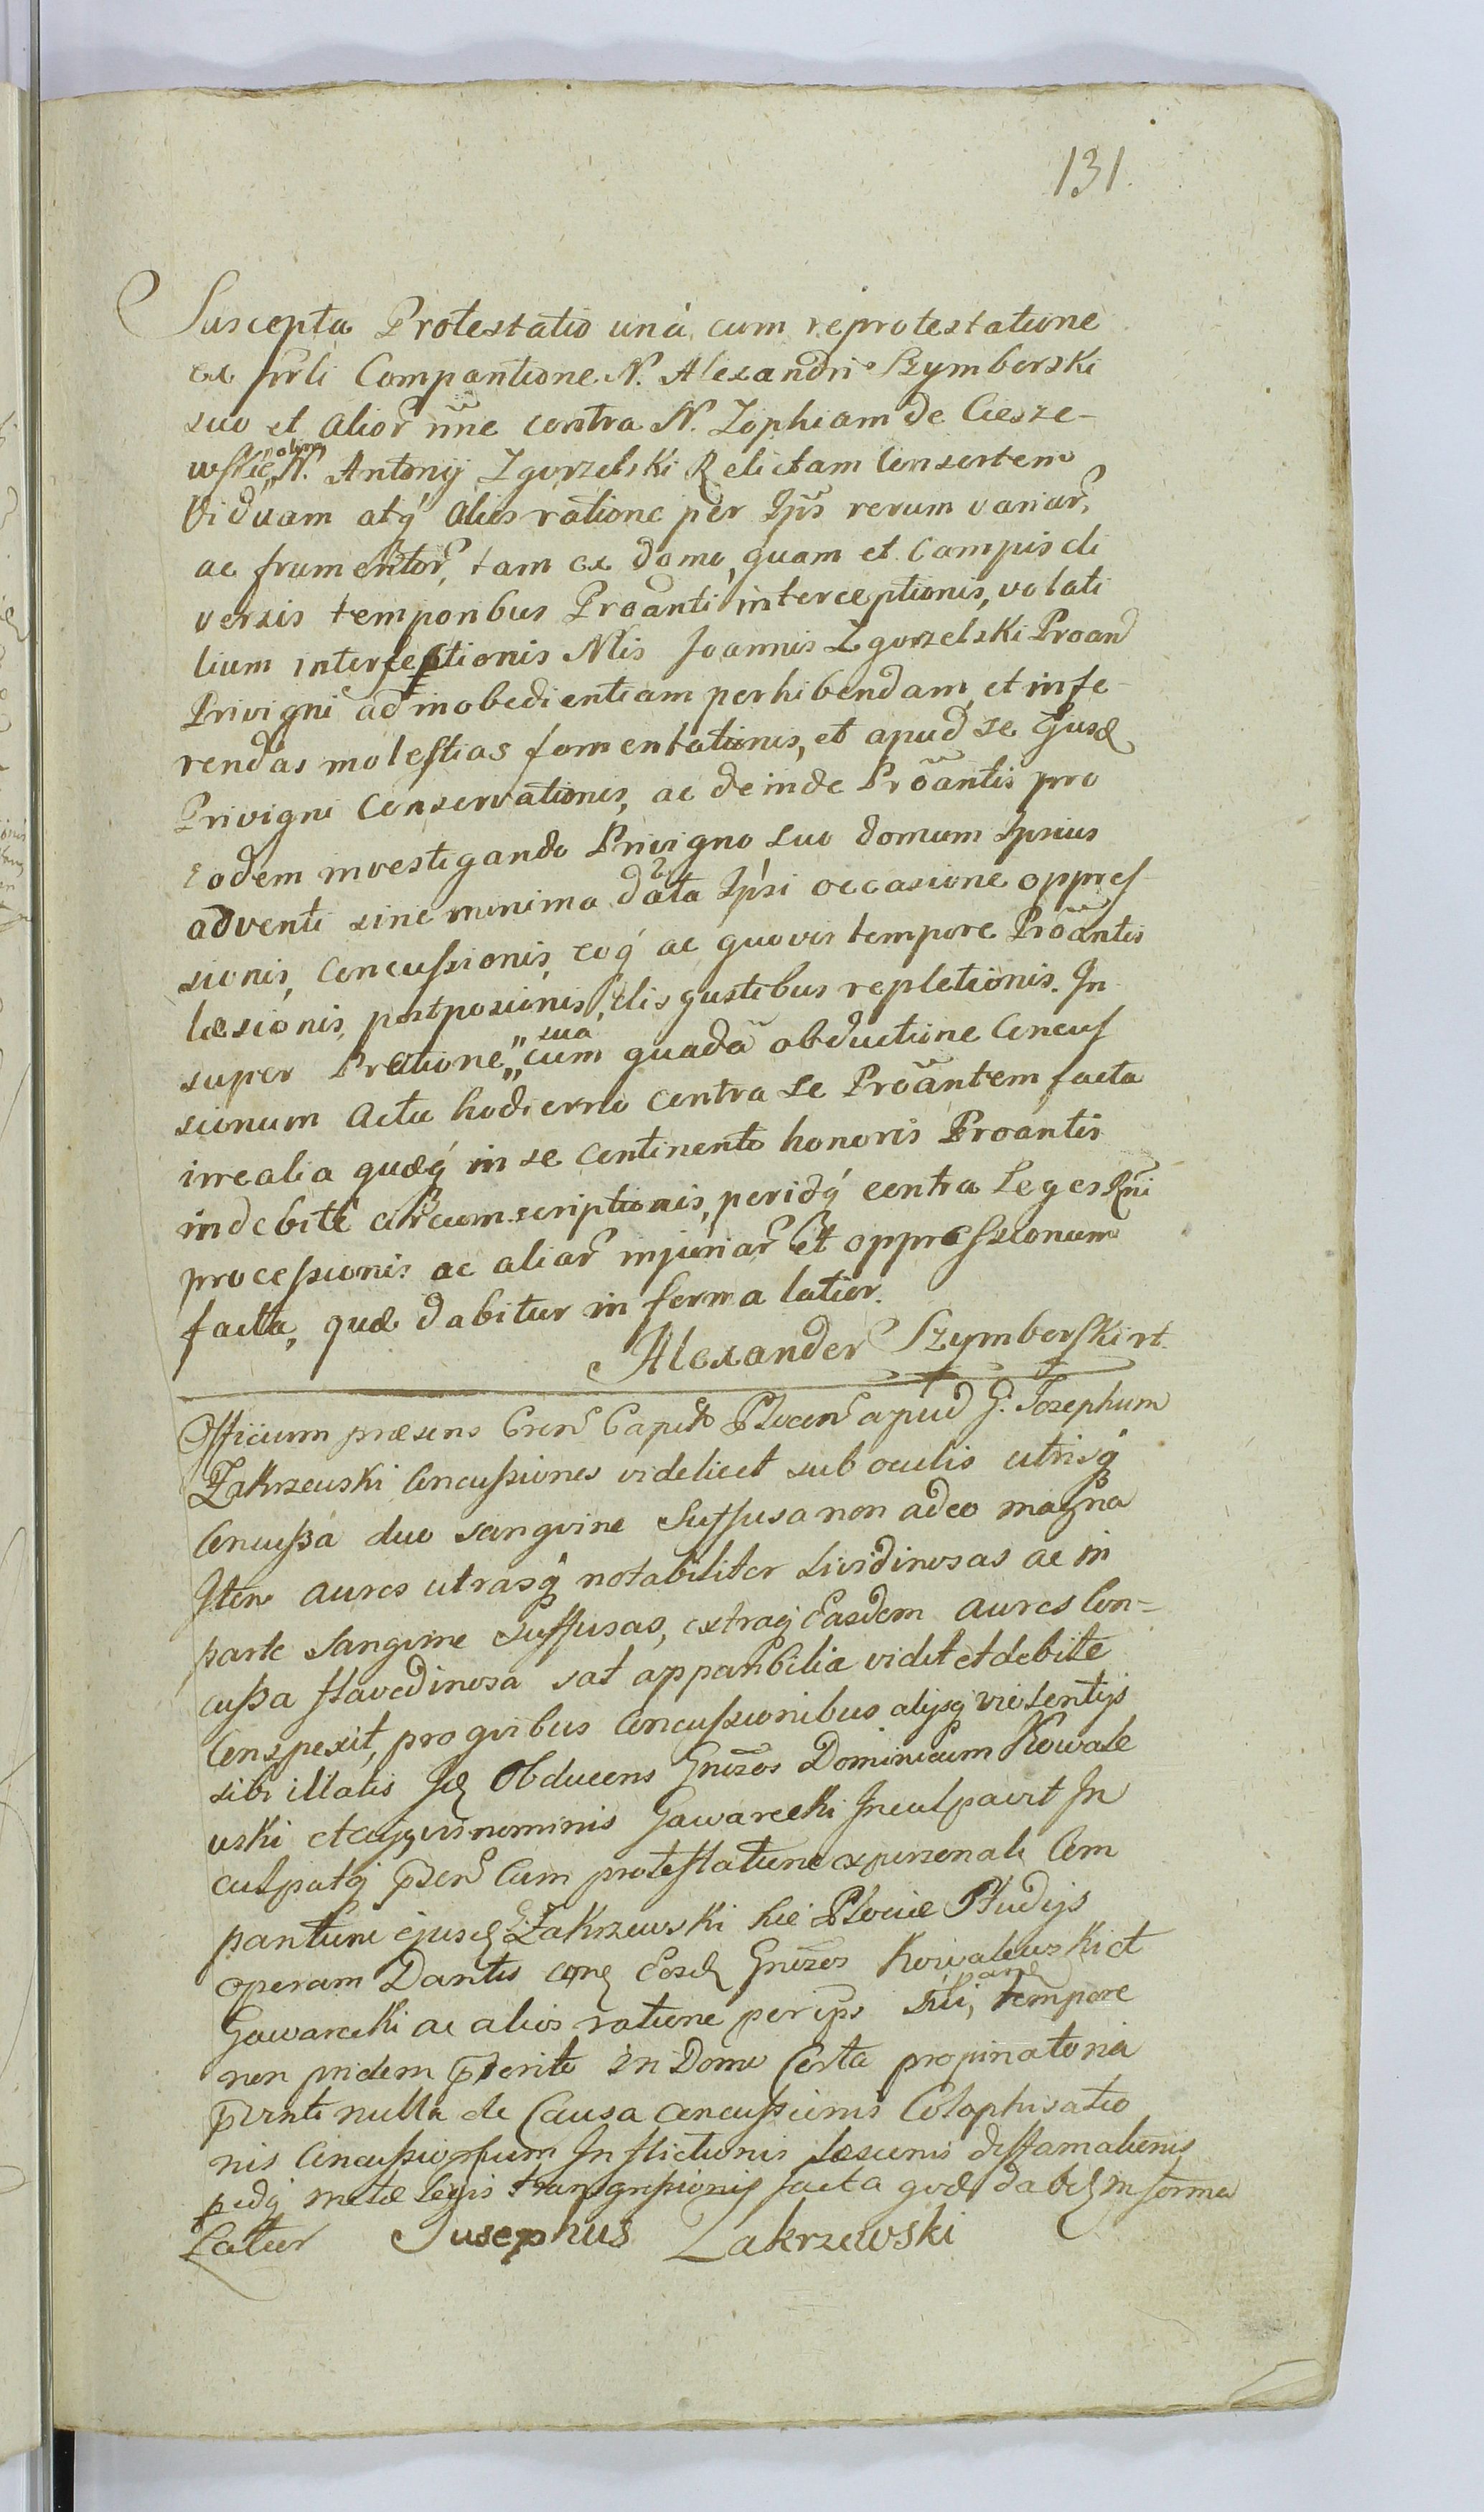 131.
Suscepta Protestatio unà cum reprotestatione
ex prli Comparitione N. Alexandri Szymborski
suo et alior nne contra N. Zophiam de Ciesze-
wskie, N. olim Antonij Zgorzelski Relictam Consortem
Viduam atq alios ratione per Ips rerum variar,
ac frumentor, tam ex domo, quam et Campis di
versis temporibus Proanti interceptionis, volati
lium interfectionis Nlis Joannis Zgorzelski Proan
Privigni ad inobedientiam perhibendam, et infe-
rendas molestias fomentationis, et apud se Ejusd
Privigni Conservationis, ac deinde Proantis pro
eodem investigando Privigno suo domum Ipsius
adventi sine minima data Ipsi occasione oppres
sionis, Concussionis, eoq ac quovis tempore Proantis
læsionis, postposionis, disgustibus repletionis. In
super Pretione sua cum quada obductione Concus
sionum Actu hodierno contra se Proantem facta
irrealia quæq in se Continento honoris Proantis
indebite circumscriptionis, peridq contra Leges Rni
processionis ac aliar injuriar et oppressionum
facta, quæ dabitur in forma latior.
Alexander Szymborski rt
Officium præsens Cren Capit Plocen apud G. Josephum
Zakrzewski Concussiones videlicet sub oculis utrisq
Concussa duo sangvine Suffusa non adeo magna
Item aures utrasq notabiliter Lividinosas ac in
parte Sangvine Suffusas, extraq Easdem aures Con-
cussa flavedinosa sat apparibilia vidit et debite
Conspexit, pro qvibus Concussionibus alijsq violentijs
sibi illatis Id Obducens Gnosos Dominicum Kowale
wski et cujqvis nominis Gawarecki Inculpavit In
culpatq przen Cum protestatione ex personali Com
paritione ejusd G. Zakrzewski hic Plociæ Studijs
operam Dantis con Eosd Gnosos Kowalewski et
Gawarecki ac alios ratione per ips tempore
non pridem prterito in Domo Certa propinatoria
nulla de Causa Concussionis Colaphisatio
nis Concussionum Inflictionis læsionis diffamationis
pidq metæ Legis transgressionis facta qvæ dabitr in forma
Latior Josephus Zakrzewski